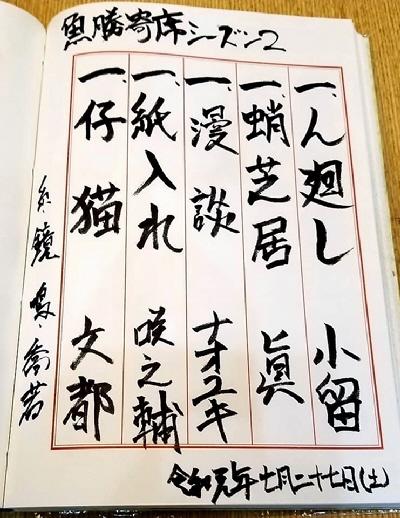 魚勝寄席シーズン2
一、ん廻し 小留
一、蛸芝居 眞
一、漫談 ナオユキ
一、紙入れ 咲之輔
一、仔猫 文都
糸・鏡 鳴・喬若
令和元年七月二十七日(土)